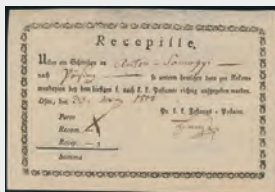 Recepisse.
Ueber ein Schreiben an Anton Somogyi
nach
so unterm heutigen dato zur Rekom-
mandazion bey dem hiesigen k. auch k. k. Postamte richtig aufgegeben worden.
Ofen, den 1808
Pr. k. k. Postamts-
Porto
Recom.
Recep.
Summa